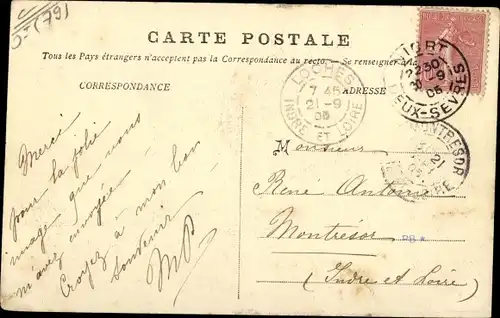 D-(79)
CARTE POSTALE
Tous les Pays étrangers n'acceptent pas la Correspondance au recto. Se renseigner à la
CORRESPONDANCE
ADRESSE
NIORT
22 30
20 -9
05
DEUX-SEVRES
LOCHES
7 45
21 -9
05
INDRE ET LOIRE
MONTRESOR
21
Merci
pour la jolie
image que vous
m'avez envoyée
Croyez à mon bon
souvenir
MP
Monsieur
René Antoine
Montrésor
(Indre et Loire)